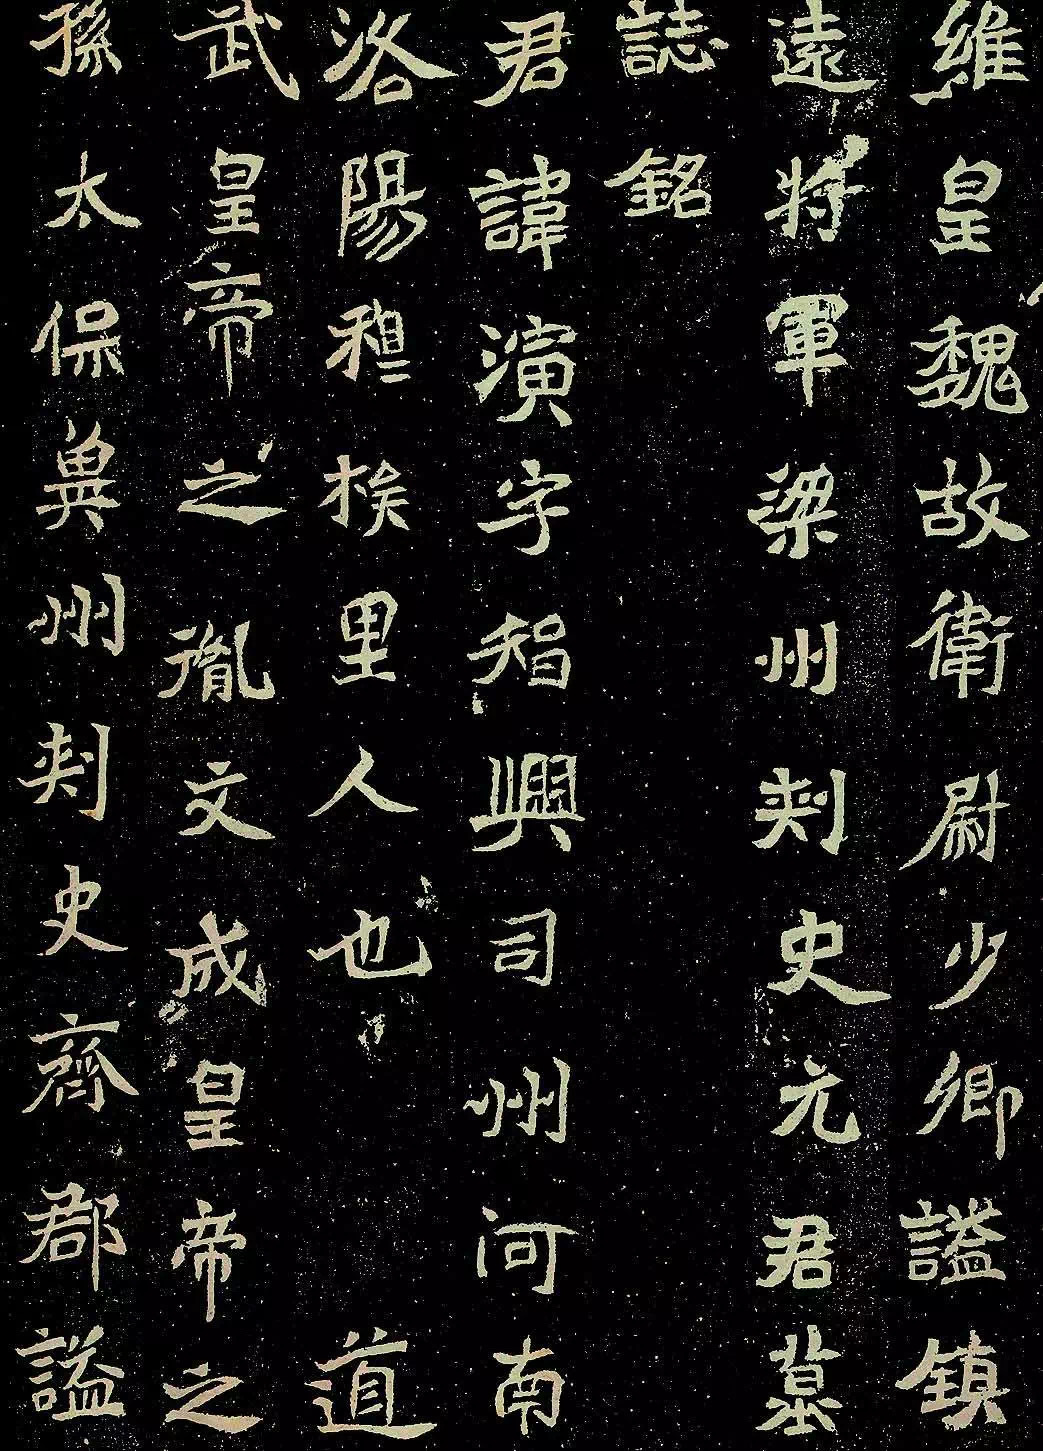 維皇魏故衛尉少卿謚鎮
遠將軍梁州刾史元君墓
誌銘
君諱演字智興司州河南
洛陽穆族里人也道
武皇帝之胤文成皇帝之
孫太保冀州刾史齊郡謚